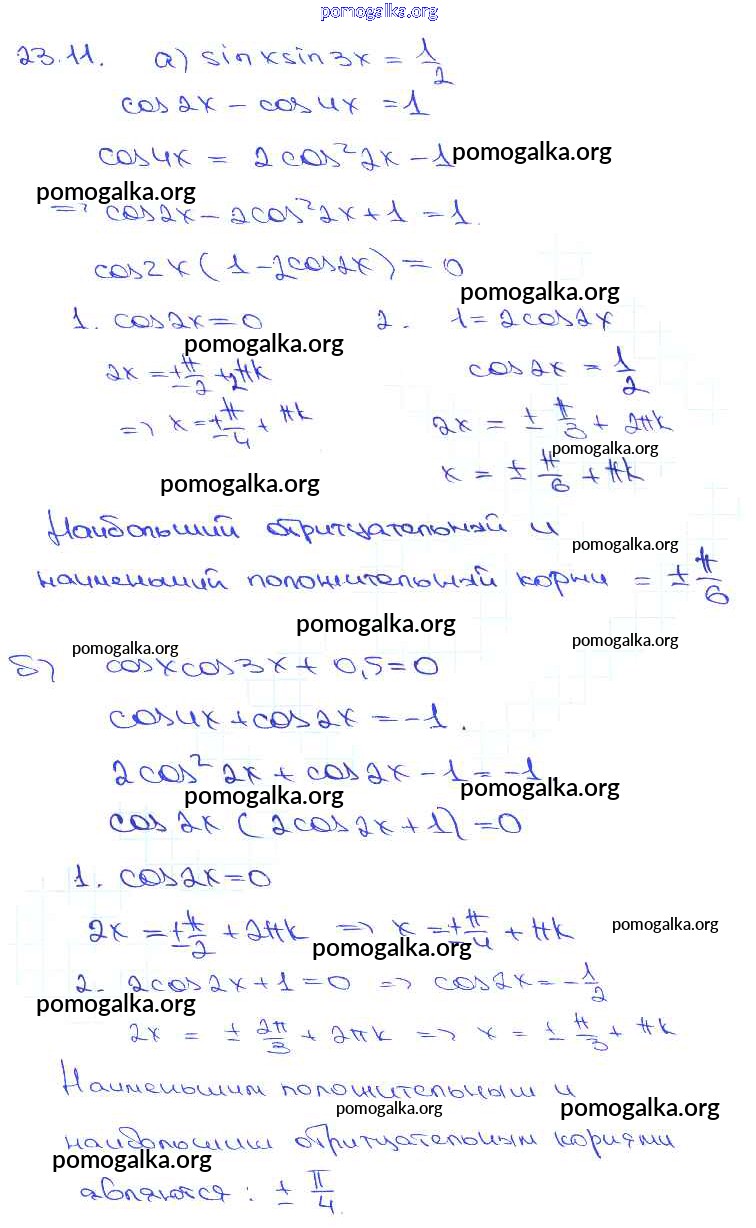 pomogalka.org
23.11. а) sin x sin 3x = 1/2
cos 2x - cos 4x = 1
cos 4x = 2 cos² 2x - 1 pomogalka.org
pomogalka.org
=> cos 2x - 2 cos² 2x + 1 = 1.
cos 2x (1 - 2 cos 2x) = 0
pomogalka.org
1. cos 2x = 0 2. 1 = 2 cos 2x
pomogalka.org
2x = ± π/2 + 2πk cos 2x = 1/2
=> x = ± π/4 + πk 2x = ± π/3 + 2πk
pomogalka.org
x = ± π/6 + πk
pomogalka.org
Наибольший отрицательный и
pomogalka.org
наименьший положительный корни = ± π/6
pomogalka.org
pomogalka.org
pomogalka.org
б) cos x cos 3x + 0,5 = 0
cos 4x + cos 2x = -1.
2 cos² 2x + cos 2x - 1 = -1
pomogalka.org
pomogalka.org
cos 2x (2 cos 2x + 1) = 0
1. cos 2x = 0
2x = ± π/2 + 2πk => x = ± π/4 + πk
pomogalka.org
pomogalka.org
2. 2 cos 2x + 1 = 0 => cos 2x = - 1/2
pomogalka.org
2x = ± 2π/3 + 2πk => x = ± π/3 + πk
Наименьшим положительным и
pomogalka.org
pomogalka.org
наибольшим отрицательным корнями
pomogalka.org
являются: ± π/4